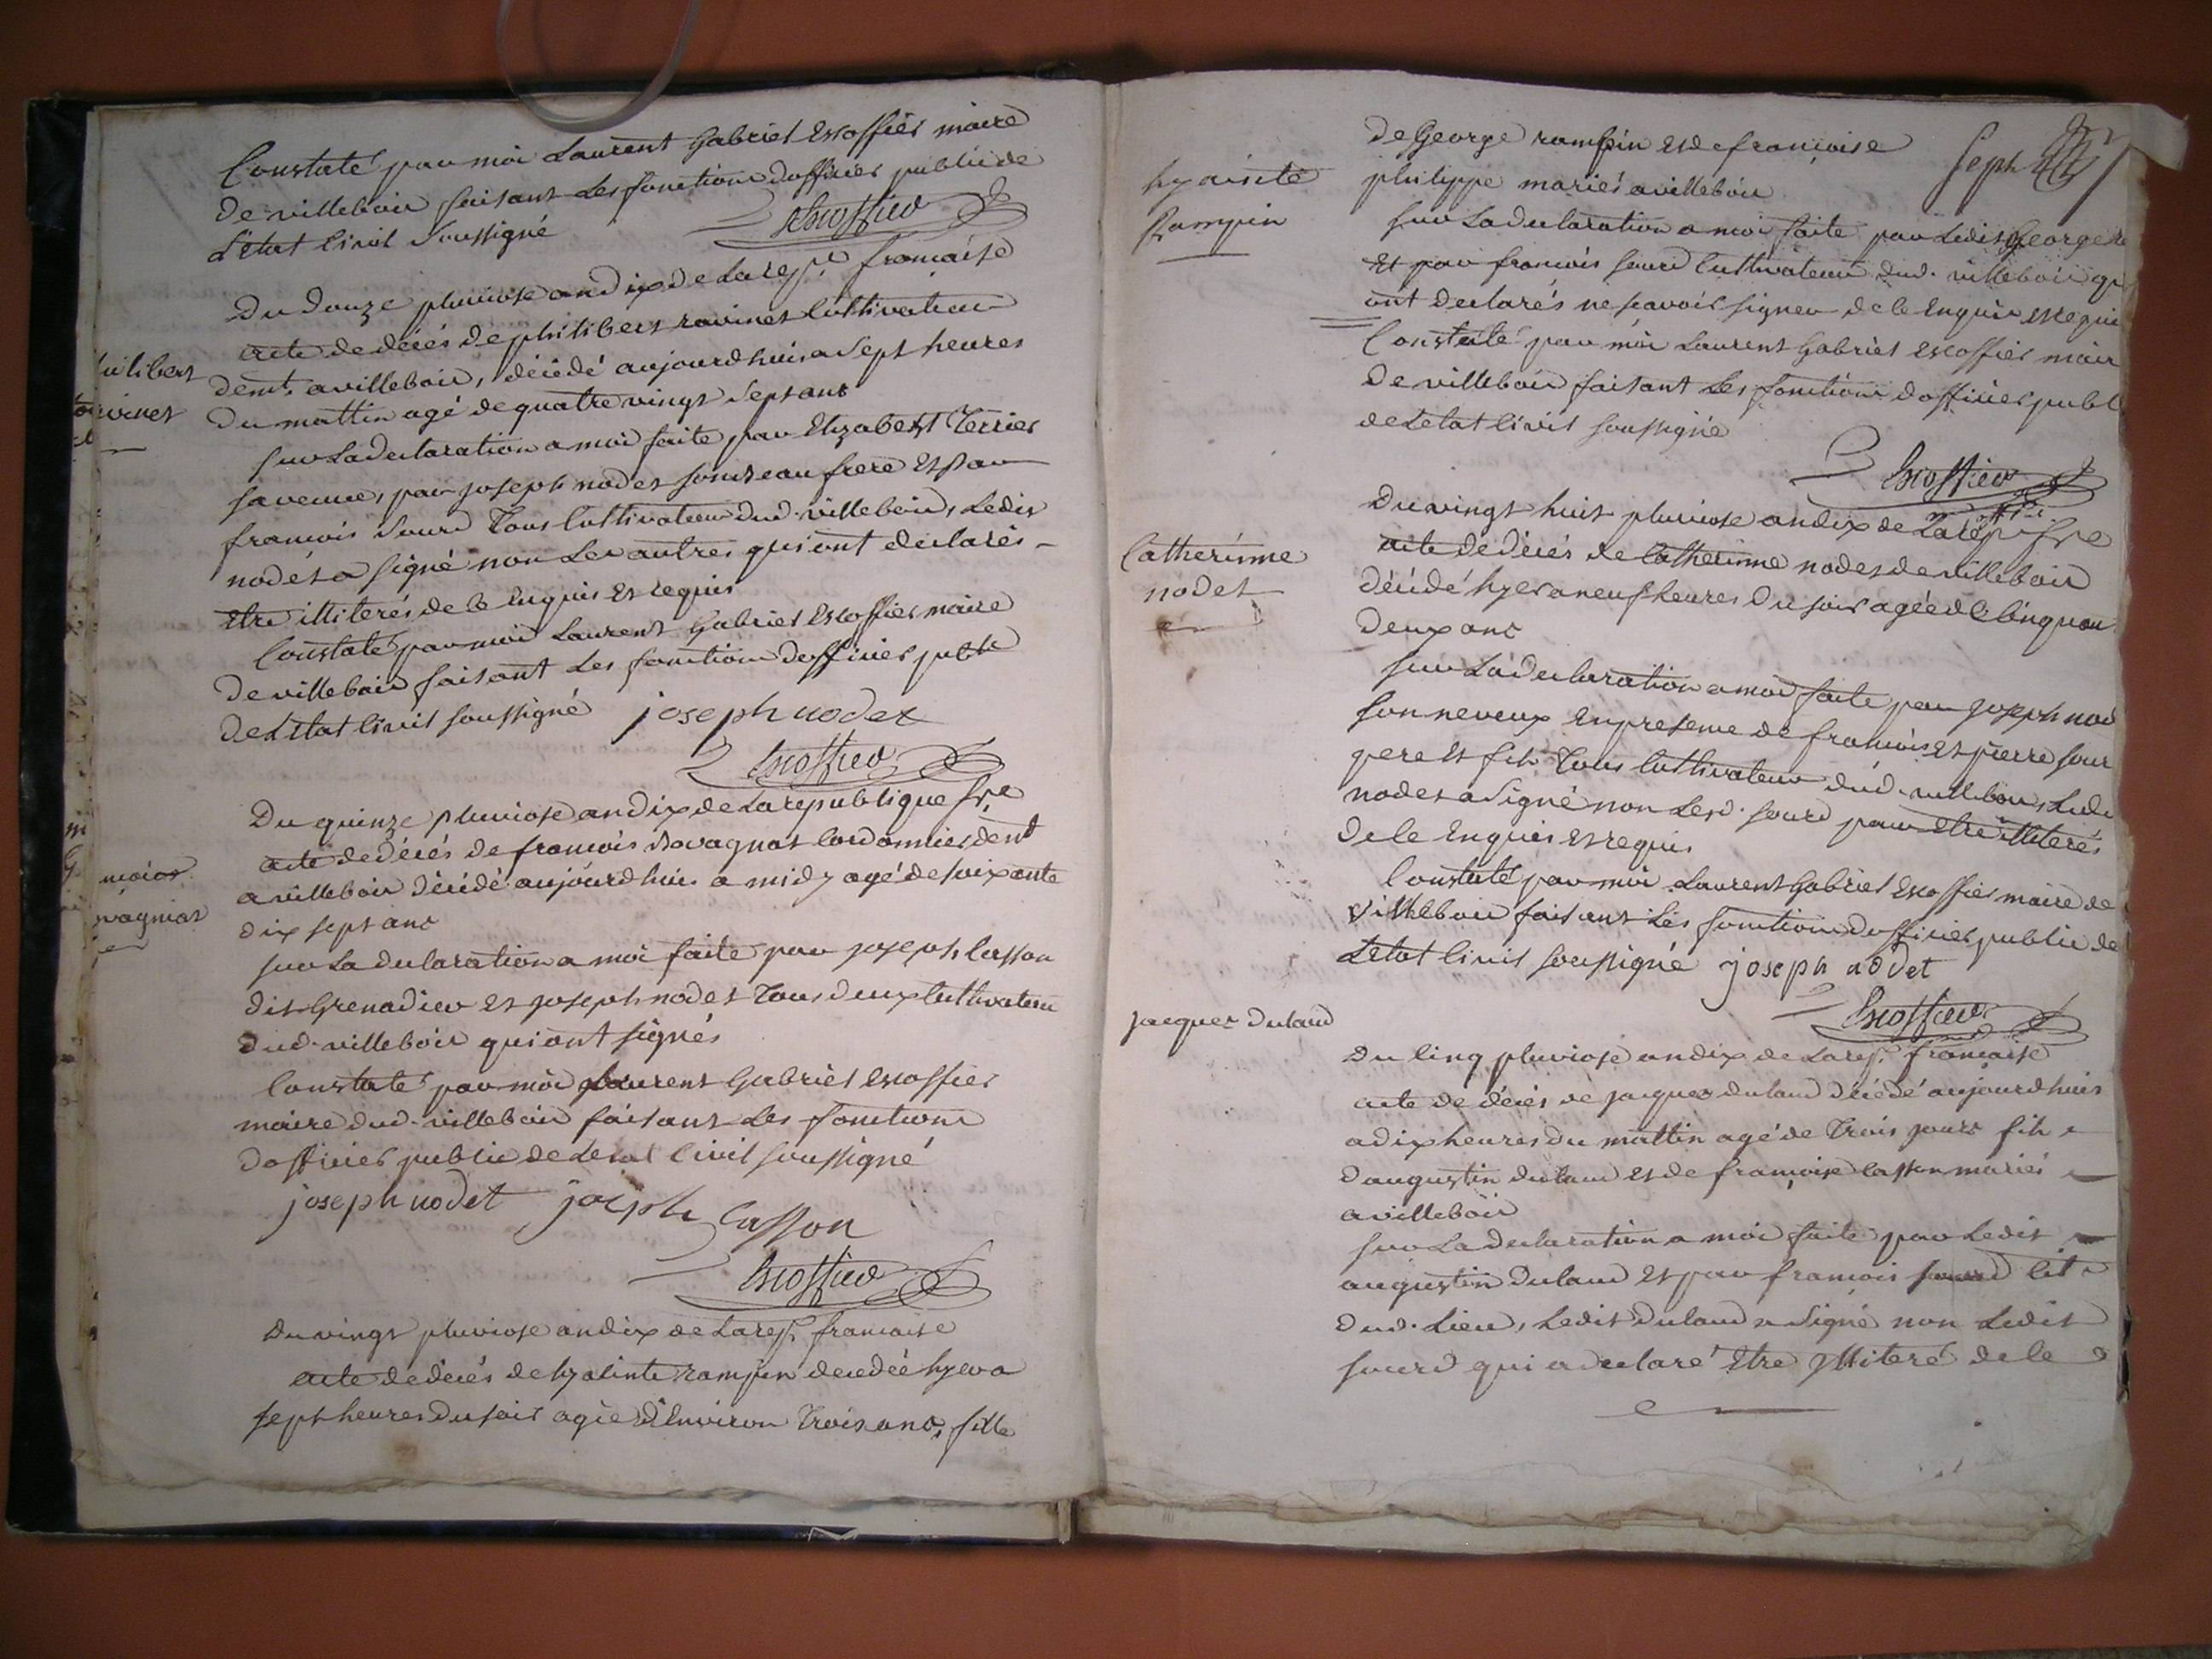 Constaté par moi Laurent Gabriel Escoffier maire
de villebois faisant les fonctions dofficier public de
L'état Civil Soussigné
Escoffier
Du Douze pluviose an dix de la rep. française
acte de décés de philibert ravinet Cultivateur
demt. a villebois, décédé aujourdhuis a Sept heures
Du mattin agé de quatre vingt Sept ans
philibert
ravinet
Sur La declaration a moi faite par Elizabeth Terrier
sa veuve, par joseph nodet son beau frere Et par
francois Sourd Tous Cultivateurs dud. villebois, Ledit
nodet a signé non Les autres qui ont declarés
Etre illiterés de ce Enquis Et requis
Constaté par moi Laurent Gabriel Escoffier maire
De villebois faisant Les fonctions dofficier public
De L'état Civil soussigné joseph nodet
Escoffier
Du quinze pluviose an dix de La republique fse
acte de décés de francois ravagnat Cordonnier demt
a villebois décédé aujourdhuis a midy agé de soixante
dix sept ans
Sur La declaration a moi faite par joseph Casson
dit Grenadier Et joseph nodet Tous deux Cultivateurs
dud. villebois qui ont signés
Constaté par moi Laurent Gabriel Escoffier
maire dud. villebois faisant Les fonctions
dofficier public de Letat Civil soussigné
joseph nodet joseph Casson
Escoffier
Du vingt pluviose an dix de La rep. francaise
acte de décés de hyacinte rampin decedée hyer a
sept heures du soir agée d'Environ Trois ans, fille
De George rampin Et de francoise
philippe mariés a villebois
hyacinte
Rampin
Sur La declaration a moi faite par Ledit George
Et par francois sourd Cultivateurs dud. villebois qui
ont declarés ne scavoir signer de ce Enquis Et requis
Constaté par moi Laurent Gabriel Escoffier maire
De villebois faisant Les fonctions dofficier publ
de L'etat Civil soussigné
Escoffier
Du vingt huit pluviose an dix de La rep. fse
acte de décés de Catherinne nodet de villebois
décédé hyer a neuf heures du soir agée de Cinquan
deux ans
Catherinne
nodet
Sur La declaration a moi faite par joseph nod
son neveux En presence de francois Et pierre sour
pere Et fils Tous Cultivateurs dud. villebois, Led
nodet a Signé non Lesd. sourd pour Etre illiterés
De ce Enquis Et requis
Constaté par moi Laurent Gabriel Escoffier maire de
villebois faisant Les fonctions dofficier public de
L'etat Civil soussigné joseph nodet
Escoffier
jacques Duland
Du Cinq pluviose an dix de La rep. francaise
acte de décés de jacques duland décédé aujourdhuis
a dix heures du mattin agé de Trois jours fils
d'augustin duland Et de francoise Casson mariés
a villebois
Sur La declaration a moi faite par Ledit
augustin Duland Et par francois sourd Cit
dud. Lieu, Ledit Duland a Signé non Ledit
sourd qui a declaré Etre illiteré de ce